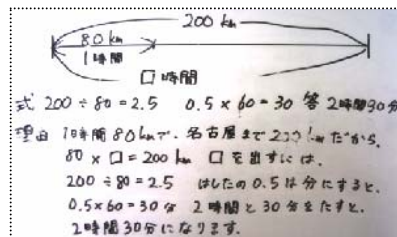 200 km
80 km
1時間
□時間
式 200÷80=2.5 0.5×60=30 答 2時間30分
理由 1時間80kmで、名古屋まで200kmだから、
80×□=200km □を出すには、
200÷80=2.5 はしたの0.5は分にすると、
0.5×60=30分 2時間と30分をたすと、
2時間30分になります。